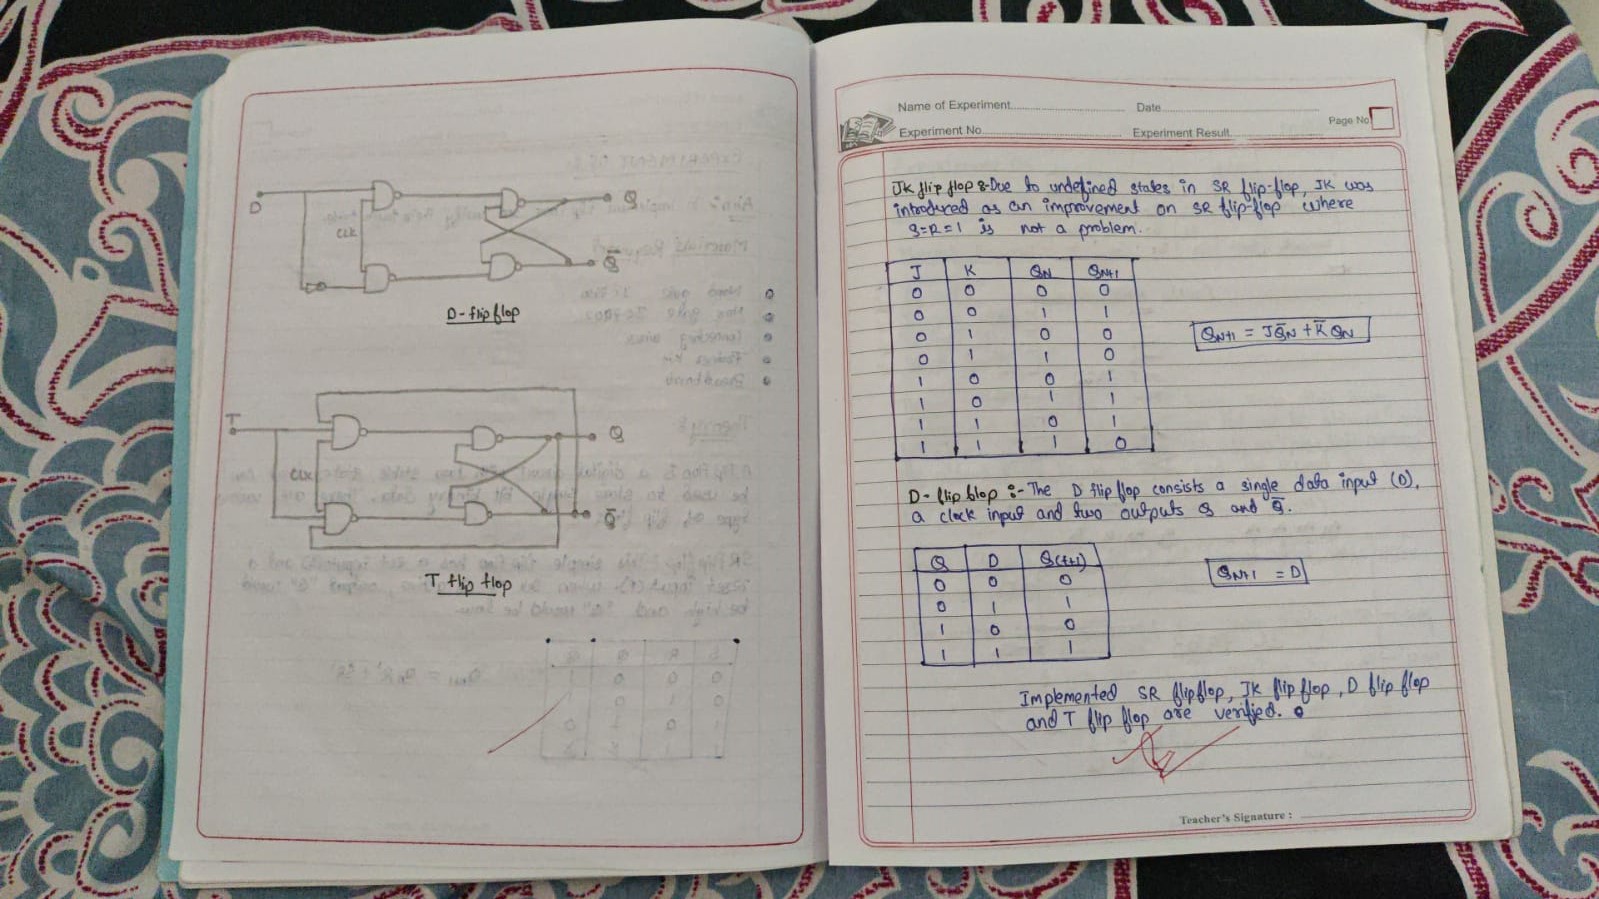 D
CLK
Q
Q̅
D-flip flop
T
CLK
Q
Q̅
T flip flop
Name of Experiment
Date
Page No
Experiment No
Experiment Result
Jk flip flop :- Due to undefined states in SR flip-flop, JK was
introduced as an improvement on SR flip-flop where
S=R=1 is not a problem.
J K QN QN+1
0 0 0 0
0 0 1 1
0 1 0 0
0 1 1 0
1 0 0 1
1 0 1 1
1 1 0 1
1 1 1 0
QN+1 = JQ̅N + K̅QN
D-flip blop :- The D flip flop consists a single data input (D),
a clock input and two outputs Q and Q̅.
Q D Q(t+1)
0 0 0
0 1 1
1 0 0
1 1 1
QN+1 = D
Implemented SR flipflop, JK flip flop, D flip flop
and T flip flop are verified.
Teacher's Signature :